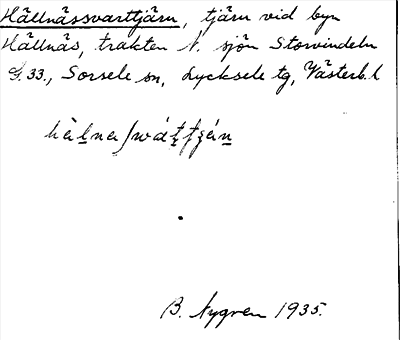 Hällnässvarttjärn, tjärn vid byn
Hällnäs, trakten N. sjön Storvindeln
G.33., Sorsele sn, Lycksele tg, Västerb. l
B. Nygren 1935.